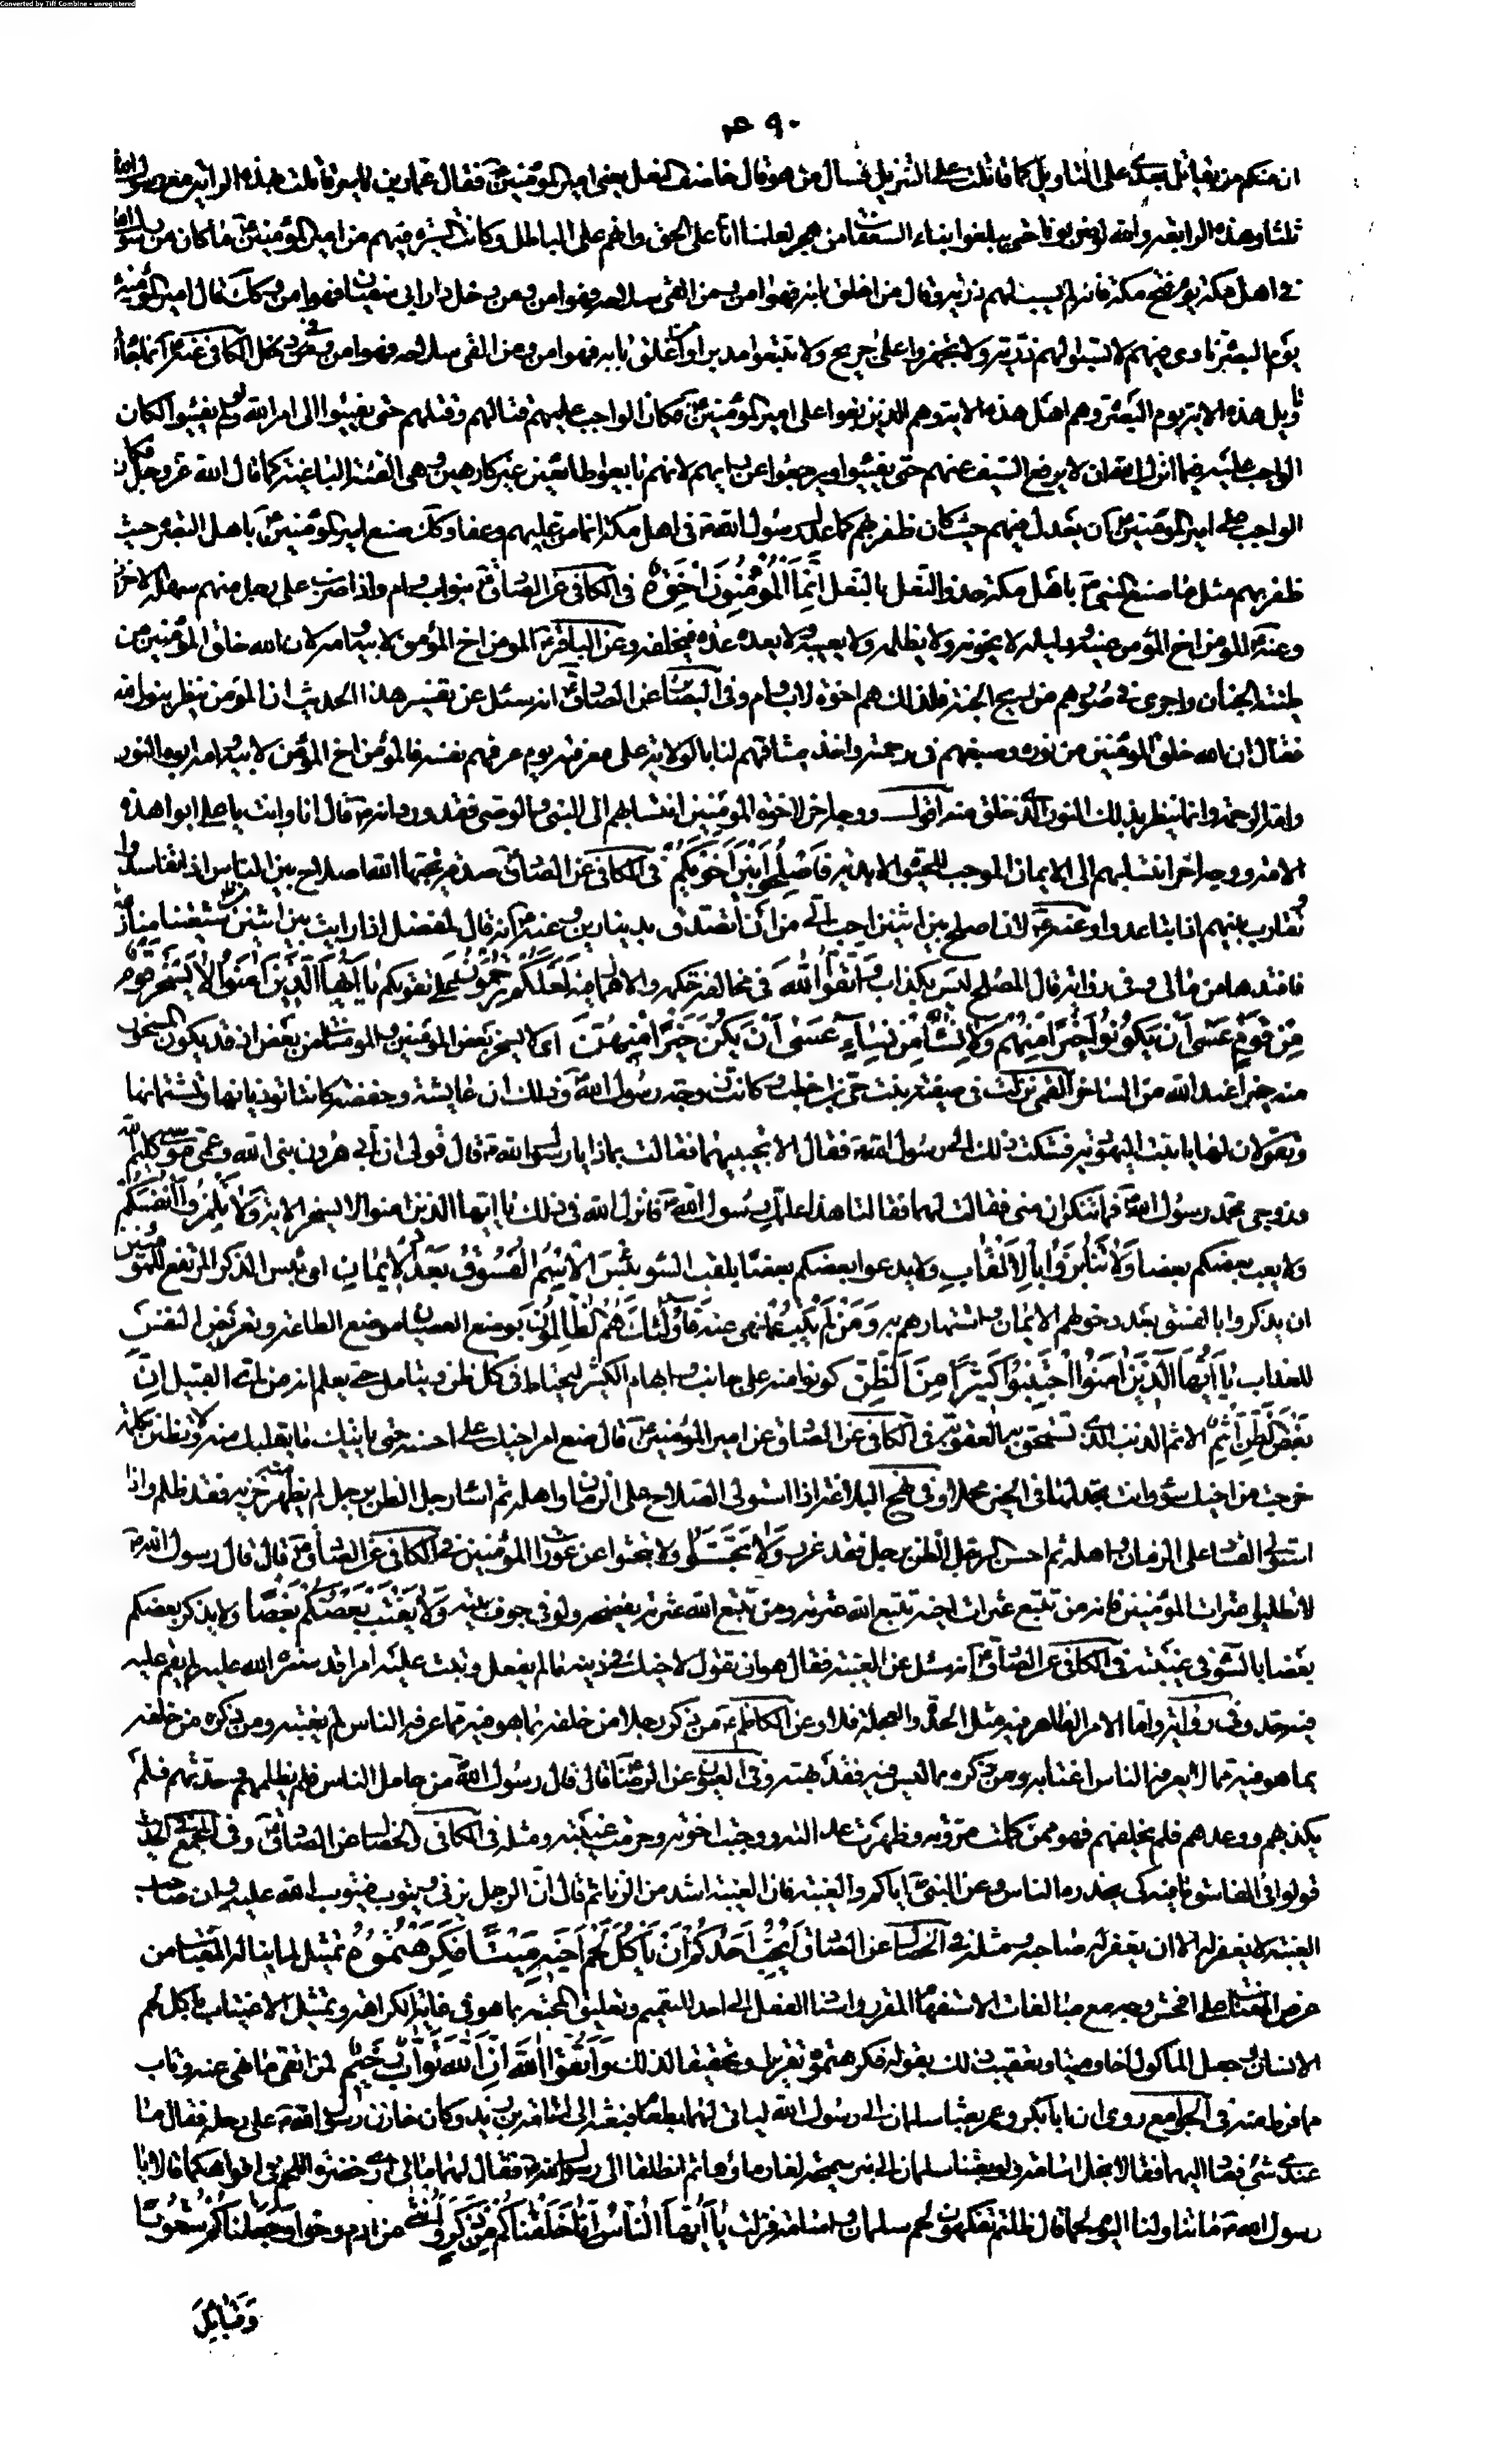 Converted by Tiff Combine - unregistered
٤٩٠
ان منكم من يقاتل بعدى على التاويل كما قاتلت على التنزيل فسال من هو قال خاصف النعل يعنى امير المؤمنينؑ فقال عمار بن ياسر قاتلت بهذه الراية مع رسول اللهؐ
ثلثا وهذه الرابعة والله لو ضربونا حتى يبلغوا بنا السعفات من هجر لعلمنا انا على الحق وانهم على الباطل وكانت السيرة فيهم من امير المؤمنينؑ ما كان من رسول اللهؐ
فى اهل مكة يوم فتح مكة فانه لم يسب لهم ذرية وقال من اغلق بابه فهو امن ومن القى سلاحه فهو امن ومن دخل دار ابى سفيان فهو امن وكذلك قال امير المؤمنينؑ
يوم البصرة نادى فيهم لا تسبوا لهم ذرية ولا تجهزوا على جريح ولا تتبعوا مدبرا ومن اغلق بابه فهو امن ومن القى سلاحه فهو امن وفى الكافى عنهؑ انما جاء
تاويل هذه الاية يوم البصرة وهم اهل هذه الاية وهم الذين بغوا على امير المؤمنينؑ فكان الواجب عليه قتالهم وقتلهم حتى يفيئوا الى امر الله ولو لم يفيئوا لكان
الواجب عليه فيما انزل الله ان لا يرفع السيف عنهم حتى يفيئوا ويرجعوا عن رايهم لانهم بايعوا طائعين غير كارهين وهى الفئة الباغية كما قال الله عز وجل فكان
الواجب على امير المؤمنينؑ ان يعدل فيهم حيث كان ظفر بهم كما عدل رسول اللهؐ فى اهل مكة انما من عليهم وعفا وكذلك صنع امير المؤمنينؑ باهل البصرة حيث
ظفر بهم مثل ما صنع النبىؐ باهل مكة حذو النعل بالنعل اِنَّمَا الْمُؤْمِنُونَ اِخْوَةٌ فى الكافى عن الصادقؑ بنو اب وام واذا ضرب على رجل منهم عرق سهر له الاخرون
وعنهؑ المؤمن اخ المؤمن عينه ودليله لا يخونه ولا يظلمه ولا يعيبه ولا يعده عدة فيخلفه وعن الباقرؑ المؤمن اخ المؤمن لابيه وامه لان الله خلق المؤمنين من
طينة الجنان واجرى فى صورهم من ريح الجنة فلذلك هم اخوة لاب وام وفى البصائر عن الصادقؑ انه سئل عن تفسير هذا الحديث ان المؤمن ينظر بنور الله
فقال ان الله خلق المؤمنين من نوره وصبغهم فى رحمته واخذ ميثاقهم لنا بالولاية على معرفته يوم عرفهم نفسه فالمؤمن اخ المؤمن لابيه وامه ابوه النور
وامه الرحمة وانما ينظر بذلك النور الذى خلق منه اقول ووجه اخر لاخوة المؤمنين انتسابهم الى النبى والوصى فقد ورد انهؐ قال انا وانت يا على ابوا هذه
الامة ووجه اخر انتسابهم الى الايمان الموجب للحيوة الابدية فَاَصْلِحُوا بَيْنَ اَخَوَيْكُمْ فى الكافى عن الصادقؑ صدقة يحبها الله اصلاح بين الناس اذا تفاسدوا
وتقارب بينهم اذا تباعدوا وعنهؑ لان اصلح بين اثنين احب الى من ان اتصدق بدينارين وعنهؑ انه قال لمفضل اذا رايت بين اثنين من شيعتنا منازعة
فافتدها من مالى وفى رواية قال المصلح ليس بكذاب وَاتَّقُوا اللّٰهَ فى مخالفة حكمه والاهمال فيه لَعَلَّكُمْ تُرْحَمُونَ على تقويكم يَا اَيُّهَا الَّذِينَ اٰمَنُوا لَا يَسْخَرْ قَوْمٌ
مِنْ قَوْمٍ عَسٰى اَنْ يَكُونُوا خَيْرًا مِنْهُمْ وَلَا نِسَاءٌ مِنْ نِسَاءٍ عَسٰى اَنْ يَكُنَّ خَيْرًا مِنْهُنَّ اى لا يسخر بعض المؤمنين والمؤمنات من بعض اذ قد يكون المسخور
منه خيرا عند الله من الساخر القمى نزلت فى صفية بنت حى بن اخطب وكانت زوجة رسول اللهؐ وذلك ان عايشة وحفصة كانتا تؤذيانها وتشتمانها
وتقولان لها يا بنت اليهودية فشكت ذلك الى رسول اللهؐ فقال الا تجيبينهما فقالت بماذا يا رسول اللهؐ قال قولى ان ابى هرون نبى الله وعمى موسى كليم الله
وزوجى محمد رسول اللهؐ فما تنكران منى فقالت لهما فقالتا هذا علمك رسول اللهؐ فانزل الله فى ذلك يا ايها الذين امنوا لا يسخر الاية وَلَا تَلْمِزُوا اَنْفُسَكُمْ
ولا يعب بعضكم بعضا وَلَا تَنَابَزُوا بِالْاَلْقَابِ ولا يدعوا بعضكم بعضا بلقب السوء بِئْسَ الْاِسْمُ الْفُسُوقُ بَعْدَ الْاِيمَانِ اى بئس الذكر المرتفع للمؤمنين
ان يذكروا بالفسق بعد دخولهم الايمان واشتهارهم به وَمَنْ لَمْ يَتُبْ عما نهى عنه فَاُولٰئِكَ هُمُ الظَّالِمُونَ بوضع العصيان موضع الطاعة وتعريض النفس
للعذاب يَا اَيُّهَا الَّذِينَ اٰمَنُوا اجْتَنِبُوا كَثِيرًا مِنَ الظَّنِّ كونوا منه على جانب وابهام الكثير ليحتاط فى كل ظن ويتامل حتى يعلم انه من اى القبيل اِنَّ
بَعْضَ الظَّنِّ اِثْمٌ الاثم الذنب الذى تستحق به العقوبة فى الكافى عن الصادق عن امير المؤمنينؑ قال ضع امر اخيك على احسنه حتى ياتيك ما يقلبك منه ولا تظنن بكلمة
خرجت من اخيك سوء وانت تجد لها فى الخير محملا وفى نهج البلاغة اذا استولى الصلاح على الزمان واهله ثم اساء رجل الظن برجل لم يظهر منه خزية فقد ظلم واذا
استولى الفساد على الزمان واهله ثم احسن الرجل الظن برجل فقد غرر وَلَا تَجَسَّسُوا ولا تبحثوا عن عورات المؤمنين فى الكافى عن الصادقؑ قال قال رسول اللهؐ
لا تطلبوا عثرات المؤمنين فانه من تتبع عثرات اخيه تتبع الله عثرته ومن تتبع الله عثرته يفضحه ولو فى جوف بيته وَلَا يَغْتَبْ بَعْضُكُمْ بَعْضًا ولا يذكر بعضكم
بعضا بالسوء فى غيبته فى الكافى عن الصادقؑ انه سئل عن الغيبة فقال هو ان تقول لاخيك فى دينه ما لم يفعل وتبث عليه امرا قد ستره الله عليه لم يقم عليه
فيه حد وفى رواية واما الامر الظاهر فيه مثل الحدة والعجلة فلا وعن الكاظمؑ من ذكر رجلا من خلفه بما هو فيه مما عرفه الناس لم يغتبه ومن ذكره من خلفه
بما هو فيه مما لا يعرفه الناس اغتابه ومن ذكره بما ليس فيه فقد بهته وفى العيون عن الرضاؑ قال قال رسول اللهؐ من عامل الناس فلم يظلمهم وحدثهم فلم
يكذبهم ووعدهم فلم يخلفهم فهو ممن كملت مروته وظهرت عدالته ووجبت اخوته وحرمت غيبته ومثله فى الكافى والخصال عن الصادقؑ وفى المجمع فى الحديث
قولوا فى الفاسق ما فيه كى يحذره الناس وعن النبىؐ اياكم والغيبة فان الغيبة اشد من الزنا ثم قال ان الرجل يزنى ويتوب فيتوب الله عليه وان صاحب
الغيبة لا يغفر له الا ان يغفر له صاحبه ومثله فى الخصال عن الصادقؑ اَيُحِبُّ اَحَدُكُمْ اَنْ يَاْكُلَ لَحْمَ اَخِيهِ مَيْتًا فَكَرِهْتُمُوهُ تمثيل لما يناله المغتاب من
عرض المغتاب على افحش وجه مع مبالغات الاستفهام المقرر واسناد الفعل الى احد للتعميم وتعليق المحبة بما هو فى غاية الكراهة وتمثيل الاغتياب باكل لحم
الانسان وجعل الماكول اخا وميتا وتعقيب ذلك بقوله فكرهتموه تقريرا وتحقيقا لذلك وَاتَّقُوا اللّٰهَ اِنَّ اللّٰهَ تَوَّابٌ رَحِيمٌ لمن اتقى ما نهى عنه وتاب
مما فرط منه فى الجوامع روى ان ابا بكر وعمر بعثا سلمان الى رسول الله لياتى لهما بطعام فبعثه الى اسامة بن زيد وكان خازن رسول اللهؐ على رحله فقال ما
عندى شئ فعاد اليهما فقالا بخل اسامة ولو بعثنا سلمان الى بئر سميحة لغار ماؤها ثم انطلقا الى رسول اللهؐ فقال لهما مالى ارى خضرة اللحم فى افواهكما قالا يا
رسول اللهؐ ما تناولنا اليوم لحما قال ظللتم تفكهون لحم سلمان واسامة فنزلت يَا اَيُّهَا النَّاسُ اِنَّا خَلَقْنَاكُمْ مِنْ ذَكَرٍ وَاُنْثٰى من ادم وحوا وَجَعَلْنَاكُمْ شُعُوبًا
وَقَبَائِلَ